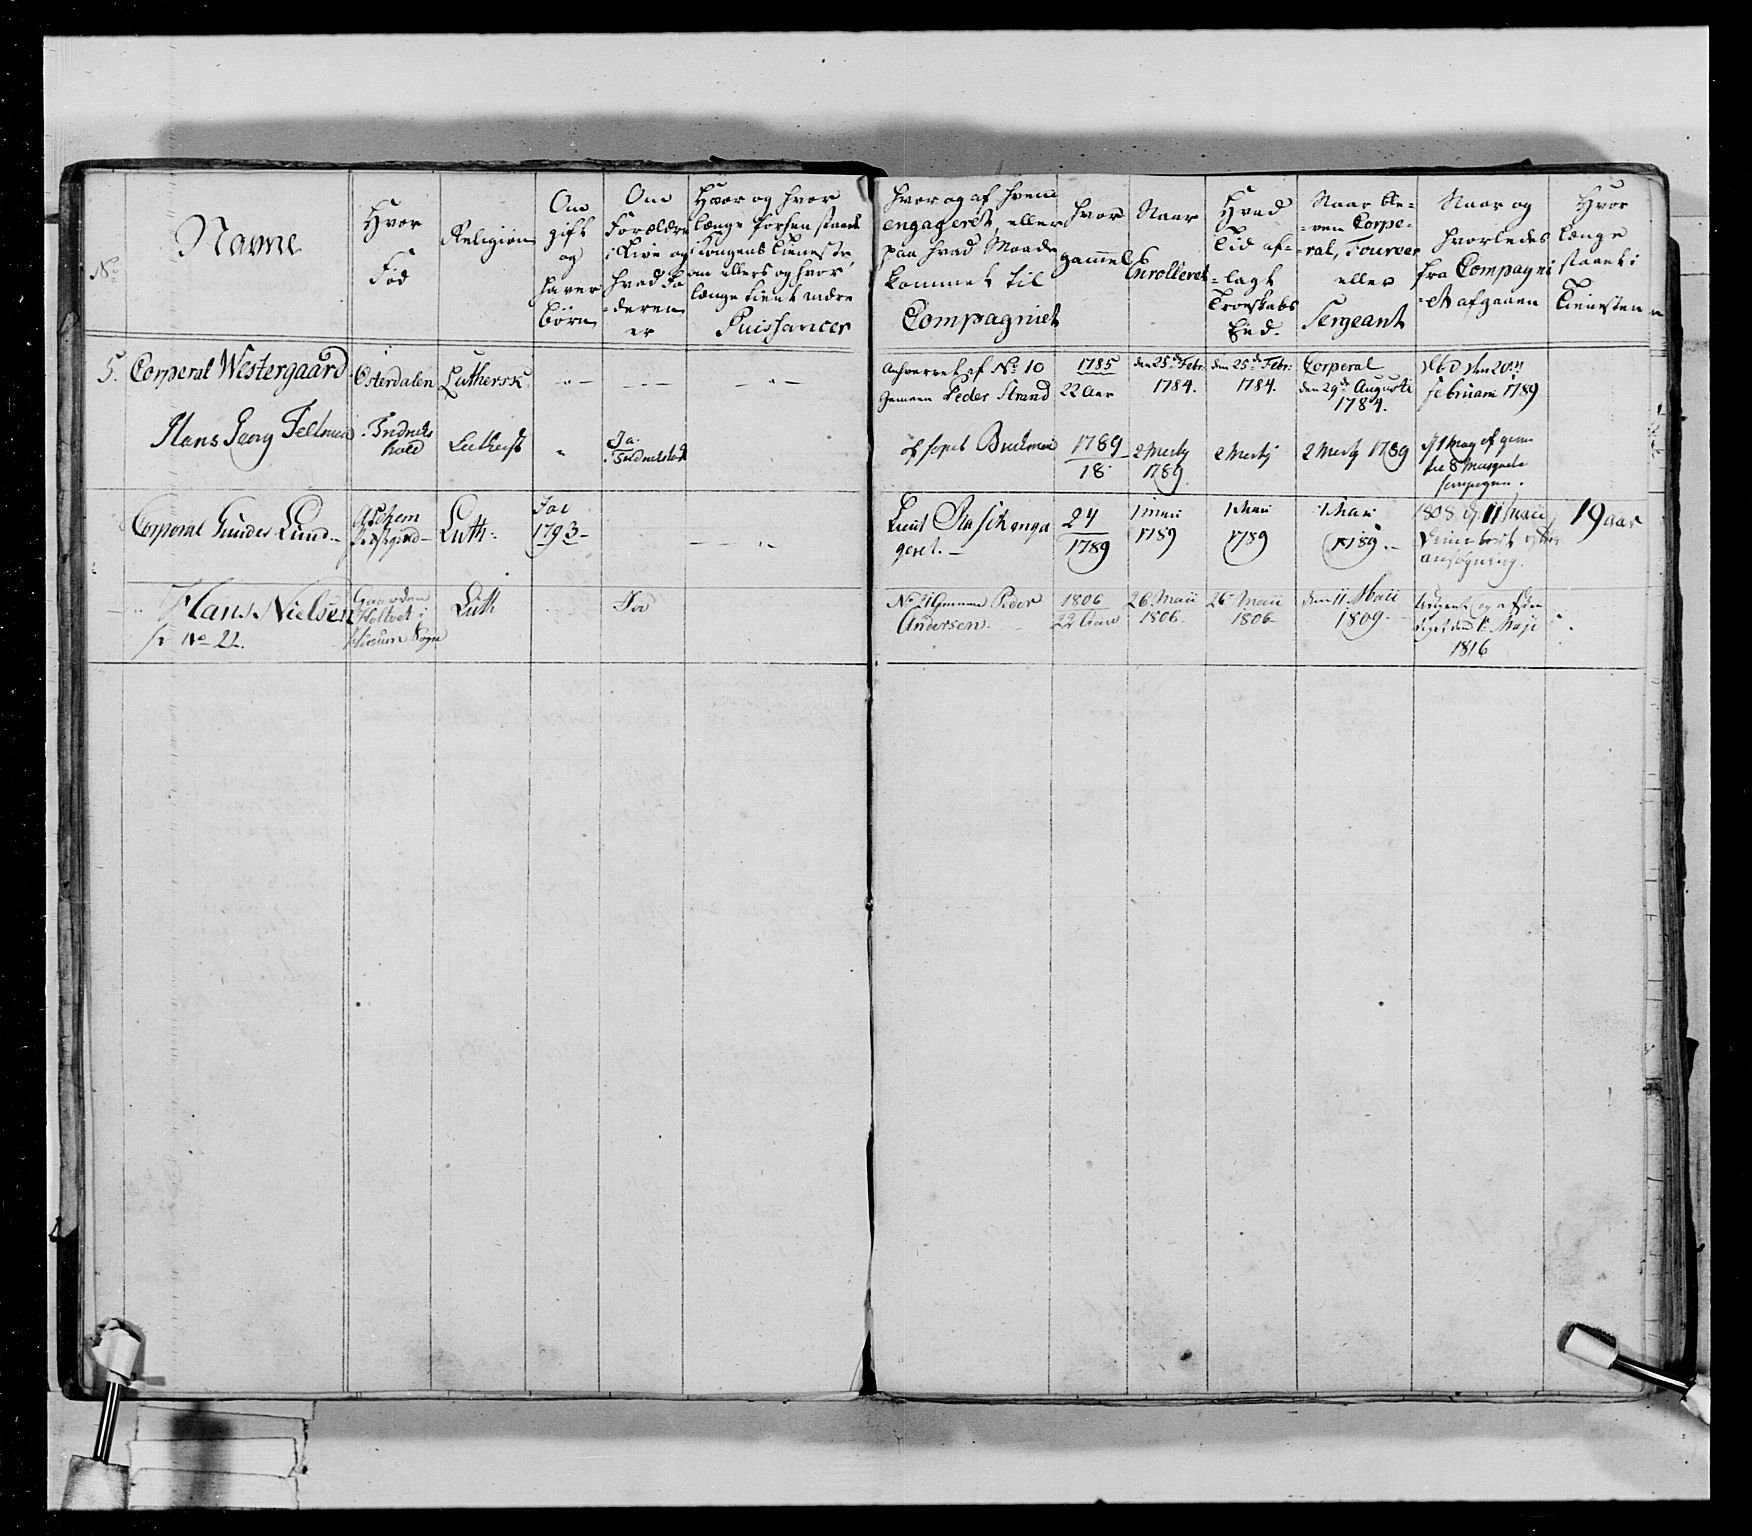 No
Navne
Hvor
Fød
Religion
Om
gift
og
haver
börn
Om
Forældre
i Live og
hvad Fa
deren
er
Hvor og hvor
længe forhen staaet
i Kongens Tieneste,
om ellers og hvor
længe tient andre
Puissancer
hvor og af hvem
engageret, eller
paa hvad Maade
kommet til
Compagniet
hvor
gammel
Naar
Enrolleret
Hvad
Tid af-
-lagt
Troeskabs
Eed.
Naar ble-
-ven Corpo-
ral, Foureer
eller
Sergeant
Naar og
hvorledes
fra Compagni
-et afgaaen
Hvor
længe
staaet i
Tienesten
5. Corporal Westergaard
Österdalen
Luthersk
Anhverret af No 10
Gemeen Peder Strand
1785
22 Aar
den 25de Febr:
1784.
den 25de Febr:
1784.
Corporal
den 29de Augusti
1784.
Död den 20de
Februarii 1789
Hans Georg
Ja.
1789
18
2 Martj
1789
2 Martj
2 Martj 1789
Corporal Gunder Lund
Luth:
Ja
1793
Lieut
geret.
24
1789
1 Maii
1789
1 Maii
1789
1 Maii
1789
1808 d: 11 Maii
ansögning.
19 aar
Hans Nielsen
fr No 22.
Gaarden
Holtvet i
Sogn
Luth
Ja
No 21 Gemeen Peder
Andersen
1806
22 Aar
26 Maii
1806
26 Maii
1806
den 11 Maii
1809
1816